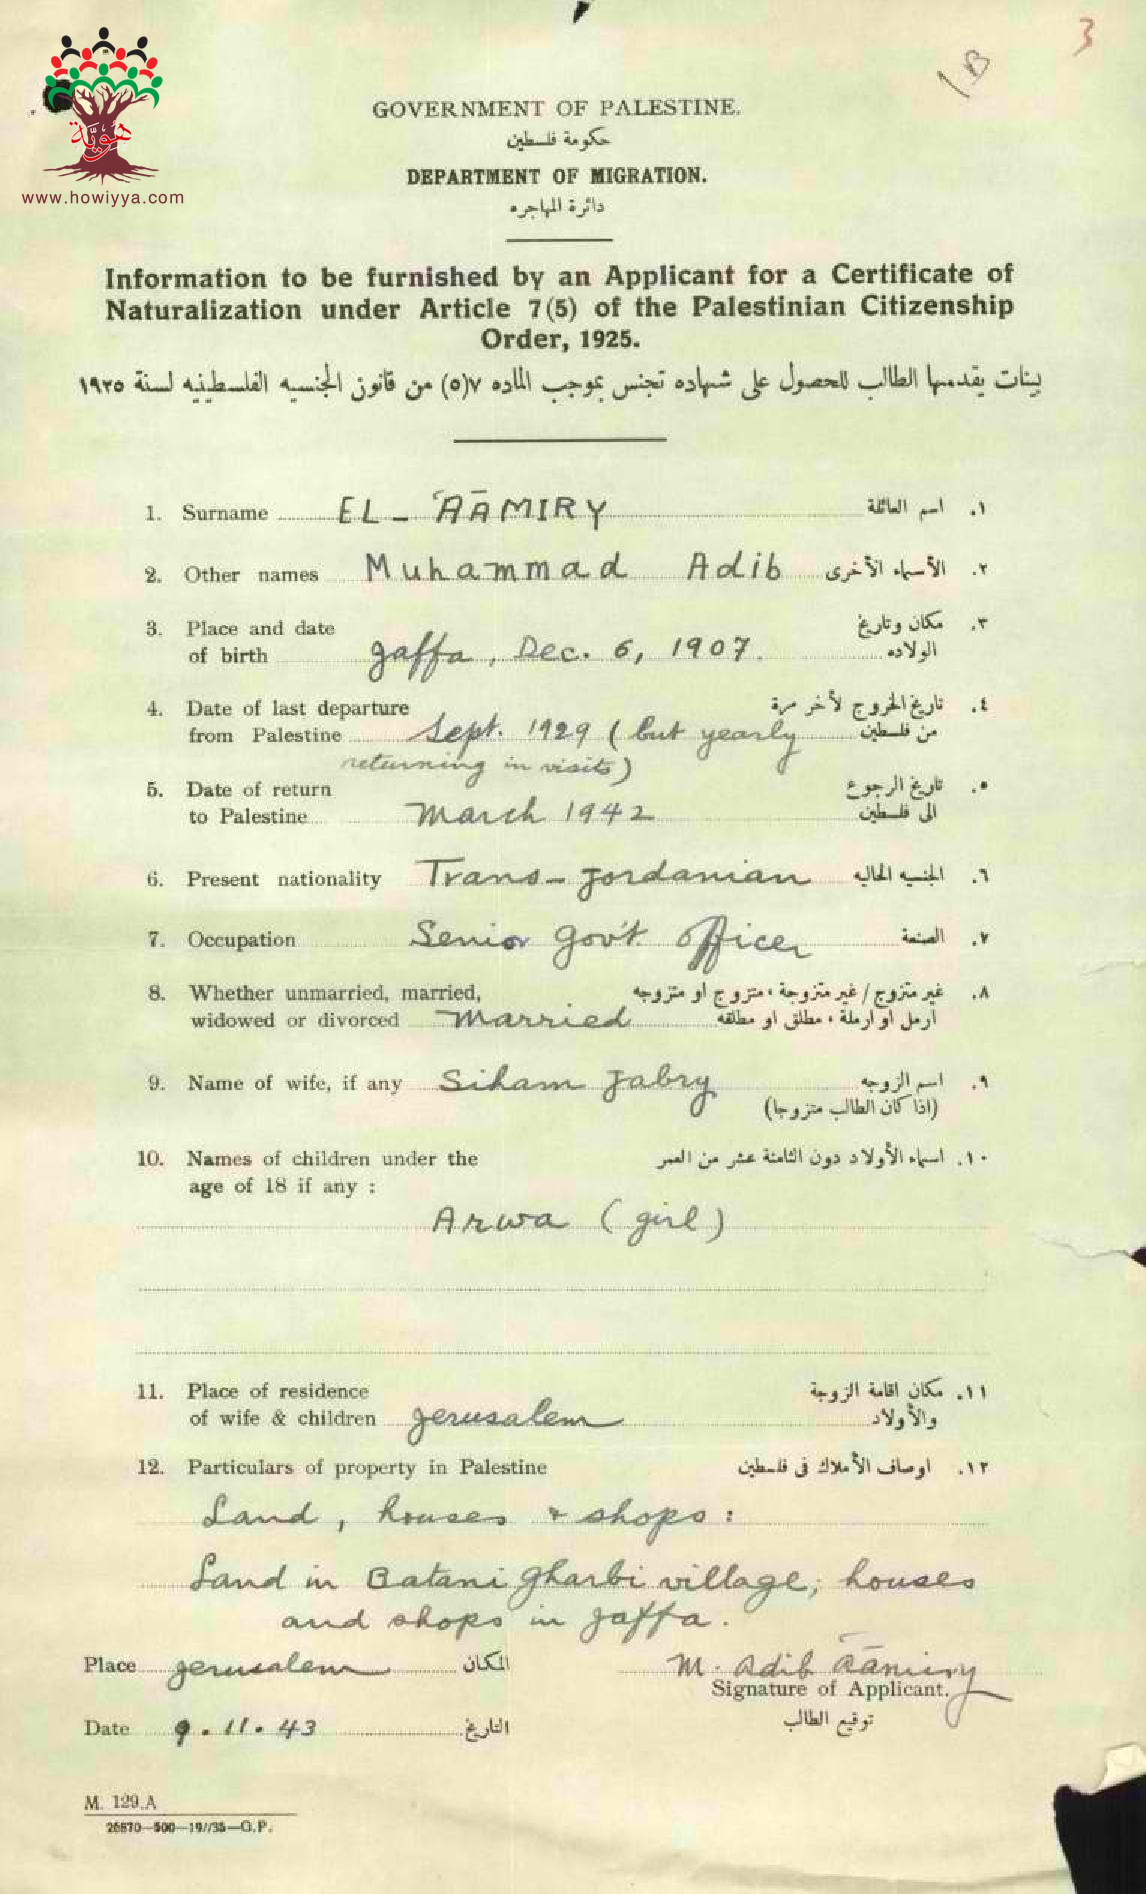 3
1B
هويّة
www.howiyya.com
GOVERNMENT OF PALESTINE.
حكومة فلسطين
DEPARTMENT OF MIGRATION.
دائرة المهاجره
Information to be furnished by an Applicant for a Certificate of
Naturalization under Article 7(5) of the Palestinian Citizenship
Order, 1925.
بينات يقدمها الطالب للحصول على شهاده تجنس بموجب الماده ٧(٥) من قانون الجنسيه الفلسطينيه لسنة ١٩٢٥
1. Surname EL - 'AĀMIRY ١. اسم العائلة
2. Other names Muhammad Adib ٢. الأسماء الأخرى
3. Place and date ٣. مكان وتاريخ
of birth Jaffa, Dec. 6, 1907. الولاده
4. Date of last departure ٤. تاريخ الخروج لآخر مرة
from Palestine Sept. 1929 (but yearly من فلسطين
returning in visits)
5. Date of return ٥. تاريخ الرجوع
to Palestine March 1942 الى فلسطين
6. Present nationality Trans-Jordanian ٦. الجنسيه الحاليه
7. Occupation Senior Gov't. Officer ٧. الصنعة
8. Whether unmarried, married, ٨. غير متزوج / غير متزوجة، متزوج او متزوجه
widowed or divorced Married ارمل او ارملة، مطلق او مطلقه
9. Name of wife, if any Siham Jabry ٩. اسم الزوجه
(اذا كان الطالب متزوجا)
10. Names of children under the ١٠. اسماء الأولاد دون الثامنة عشر من العمر
age of 18 if any :
Arwa (girl)
11. Place of residence ١١. مكان اقامة الزوجة
of wife & children Jerusalem والأولاد
12. Particulars of property in Palestine ١٢. اوصاف الأملاك في فلسطين
Land, houses & shops :
Land in Batani Gharbi village; houses
and shops in Jaffa.
Place Jerusalem المكان M. Adib Āāmiry
Signature of Applicant.
توقيع الطالب
Date 9.11.43 التاريخ
M. 129.A
26870—500—19//35—G.P.